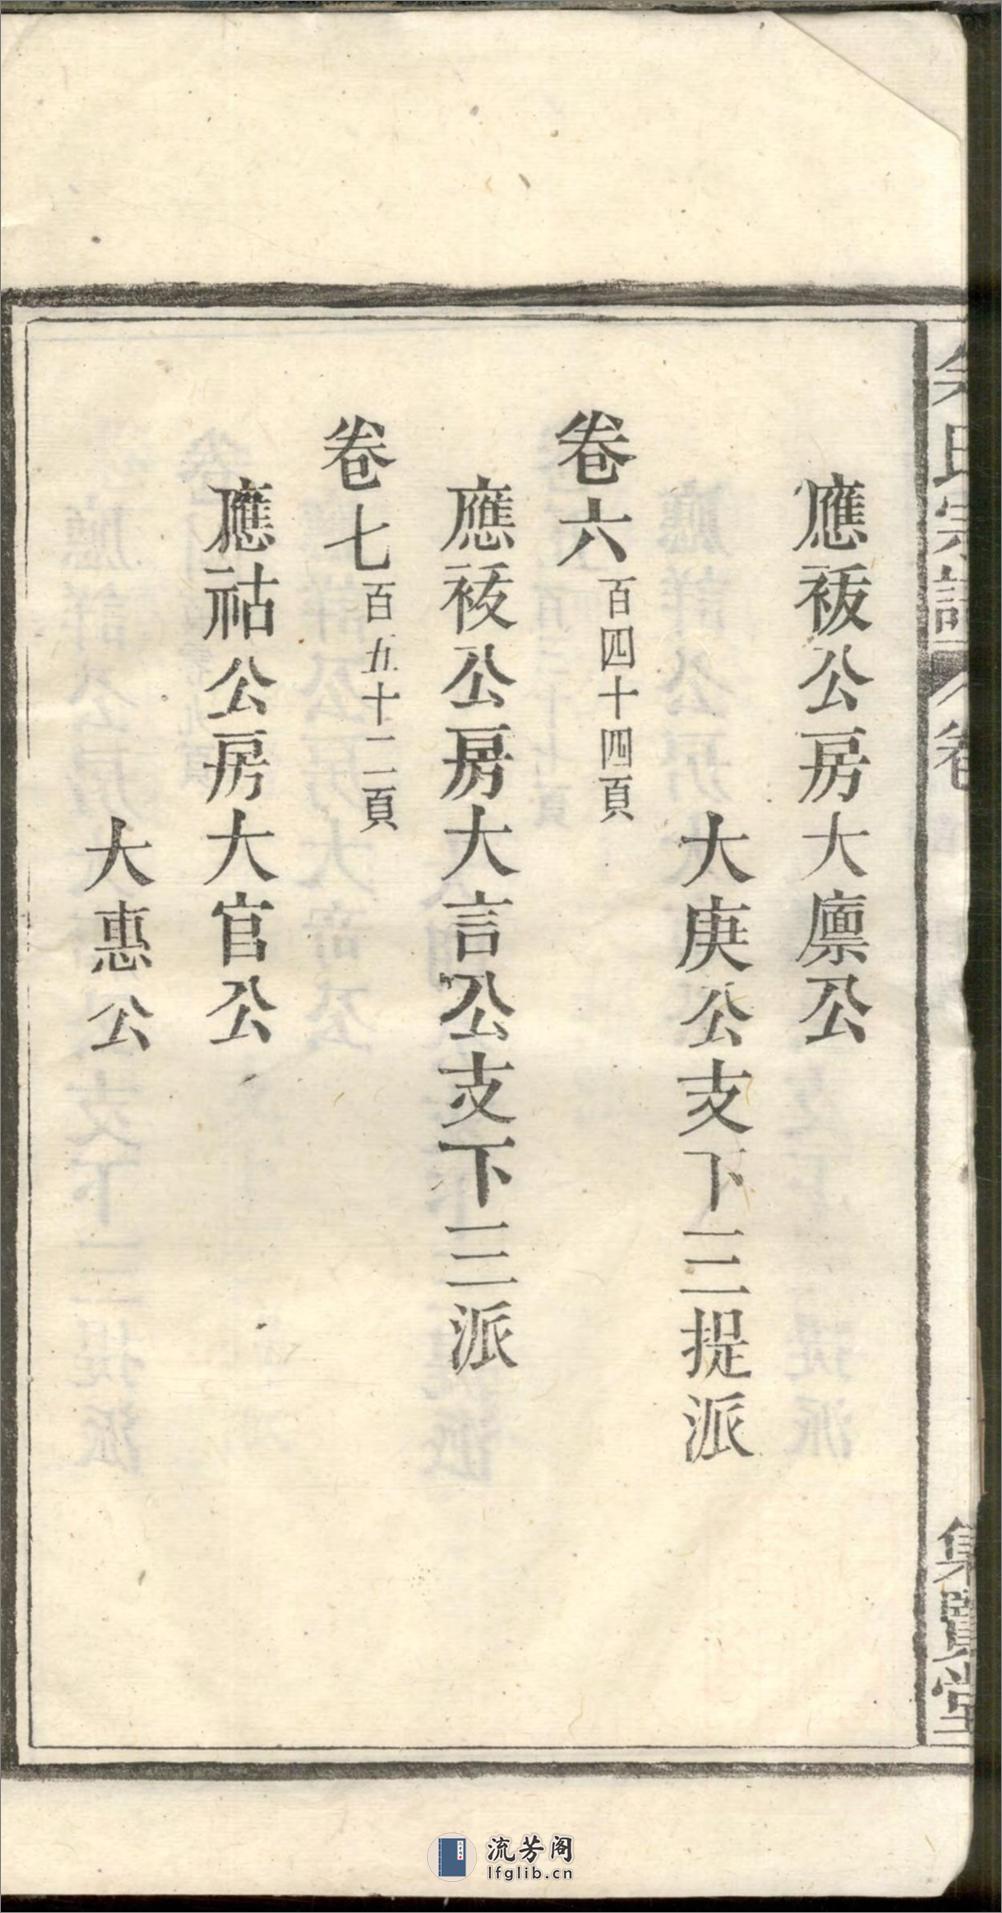 氏宗譜 卷
集堂
應祓公房大廪公
大庚公支下三提派
卷六 百四十四頁
應祓公房大言公支下三派
卷七 百五十二頁
應祜公房大官公
大惠公
流芳阁
lfglib.cn